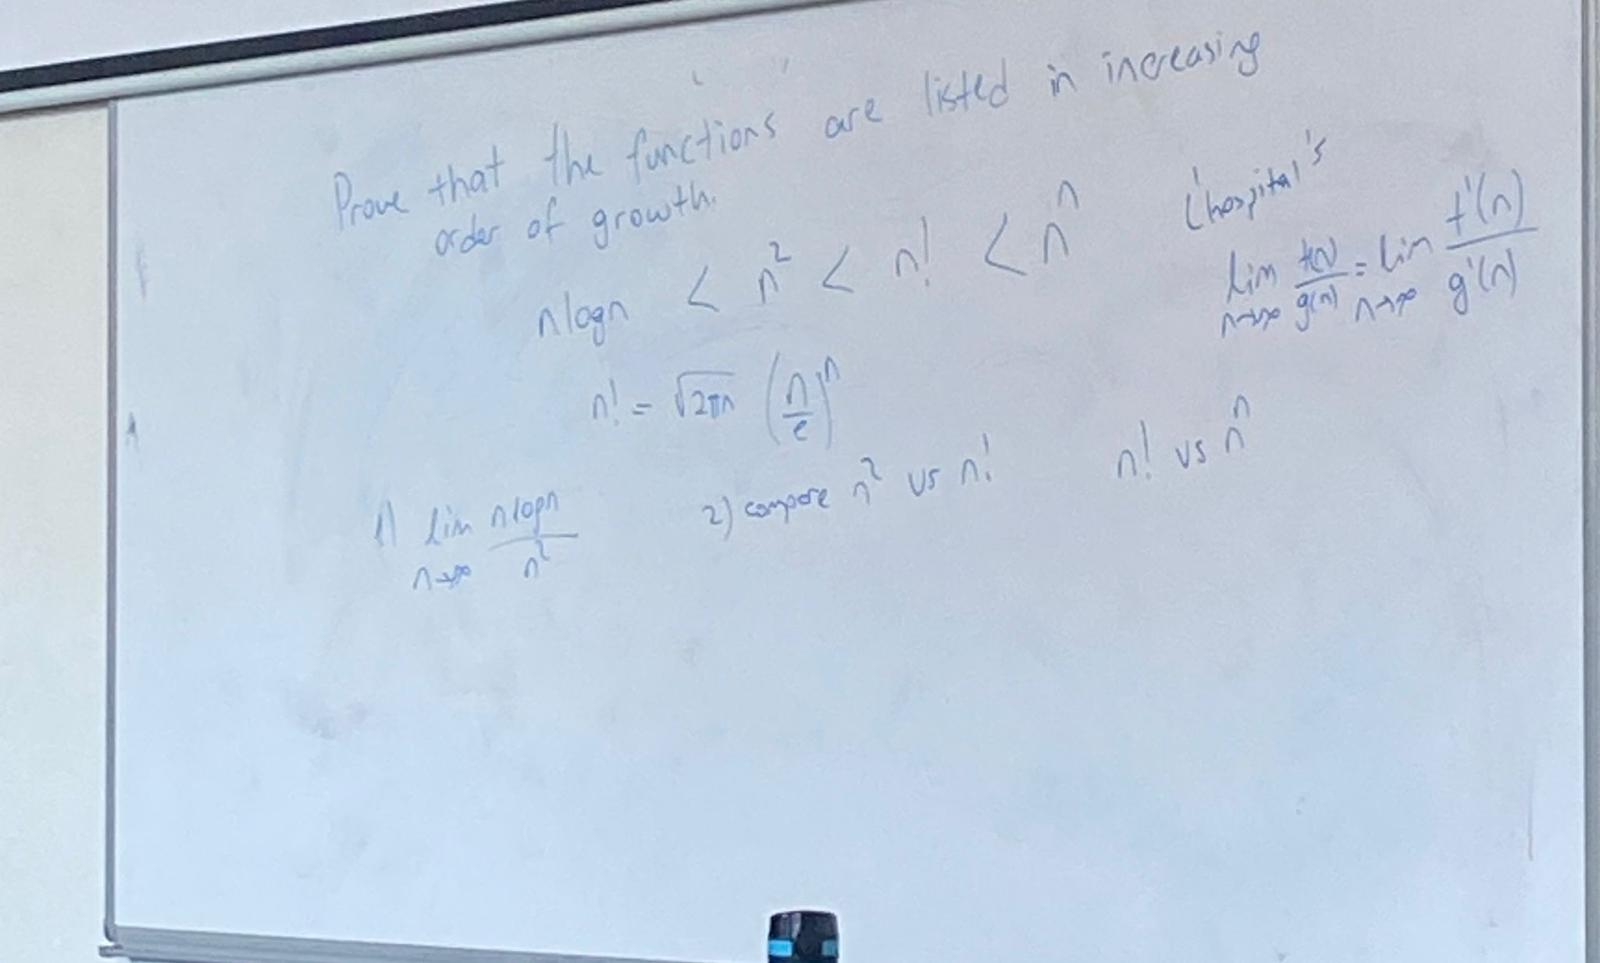 Prove that the functions are listed in increasing
order of growth.
nlogn < n² < n! < nⁿ
L'hospital's
lim n→∞ f(n)/g(n) = lim n→∞ f'(n)/g'(n)
n! = √2πn (n/e)ⁿ
1) lim n→∞ nlogn/n²
2) compare n² vs n!
n! vs nⁿ